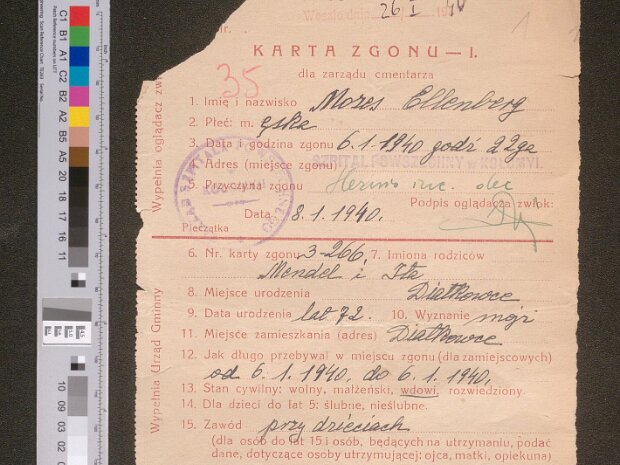 Weszło dnia 26 I
Nr.
KARTA ZGONU—I.
dla zarządu cmentarza
35
1
1. Imię i nazwisko Mozes Ellenberg
2. Płeć: m. ęska
3. Data i godzina zgonu 6.1.1940 godz 22ga
4. Adres (miejsce zgonu) SZPITAL POWSZECHNY w KOŁOMYI.
5. Przyczyna zgonu Hernia inc.
Podpis oglądacza zwłok:
Data 8.1.1940.
Pieczątka
Wypełnia oglądacz zwłok
6. Nr. karty zgonu 3-266, 7. Imiona rodziców
Mendel i Ita
8. Miejsce urodzenia Diatkowce
9. Data urodzenia lat 72. 10. Wyznanie mojż
11. Miejsce zamieszkania (adres) Diatkowce
12. Jak długo przebywał w miejscu zgonu (dla zamiejscowych)
od 6.1.1940. do 6.1.1940.
13. Stan cywilny: wolny, małżeński, wdowi, rozwiedziony.
14. Dla dzieci do lat 5: ślubne, nieślubne.
15. Zawód przy dzieciach
(dla osób do lat 15 i osób, będących na utrzymaniu, podać
dane, dotyczące osoby utrzymującej: ojca, matki, opiekuna)
Wypełnia Urząd Gminny
C1
B1
A1
C2
B2
A2
B5
A5
20
18
17
16
11
10
09
03
02